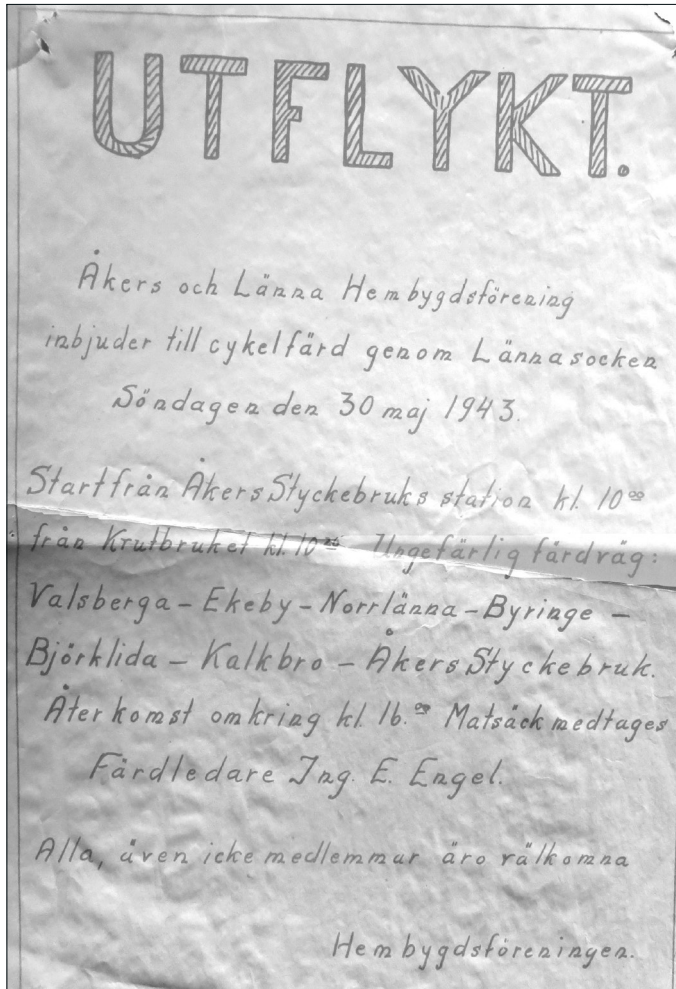 UTFLYKT.
Åkers och Länna Hembygdsförening
inbjuder till cykelfärd genom Länna socken
Söndagen den 30 maj 1943.
Start från Åkers Styckebruks station kl. 10⁰⁰
från Krutbruket kl. 10 Ungefärlig färdväg:
Valsberga – Ekeby – Norrlänna – Byringe –
Björklida – Kalkbro – Åkers Styckebruk.
Återkomst omkring kl. 16.⁰⁰ Matsäck medtages
Färdledare Ing. E. Engel.
Alla, även icke medlemmar äro välkomna
Hembygdsföreningen.